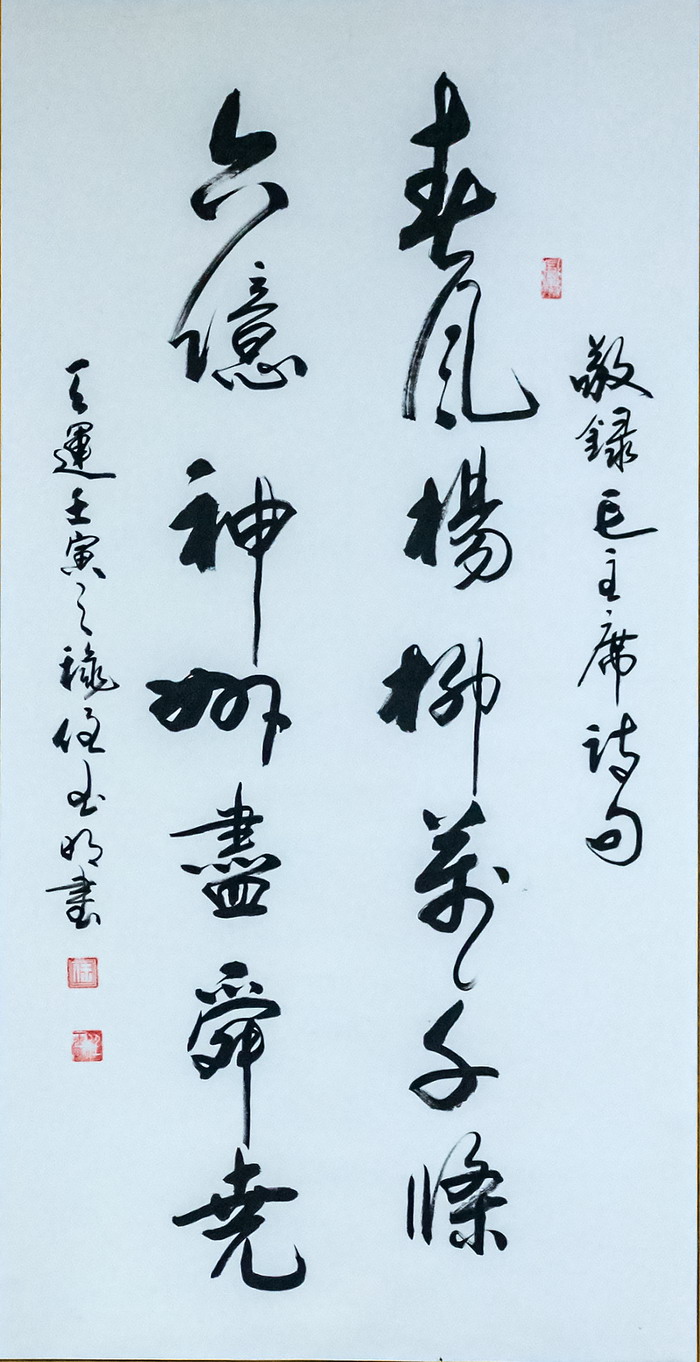 敬録毛主席詩句
春風楊柳萬千條
六億神州盡舜堯
天運壬寅之穐任玉明書